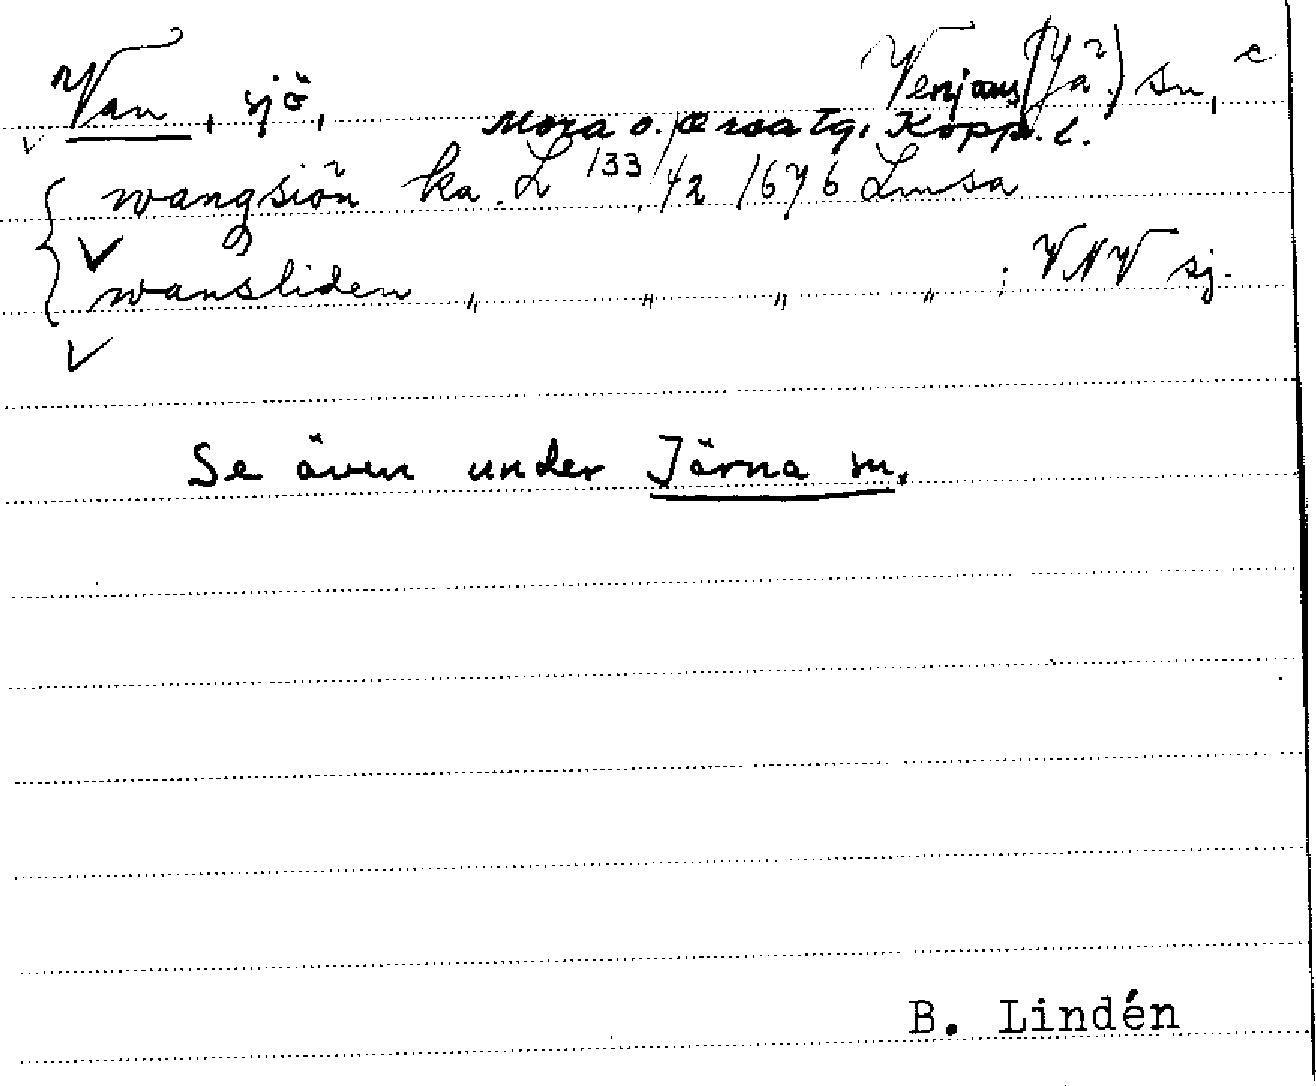 Van, sjö, Venjans (Jä) sn,
Mora o. Orsa tg, Kopp. l.
wangsiön ka L 133/42 1676 Lmsa
wansliden " " " " ; VNV sj.
Se även under Järna sn.
B. Lindén